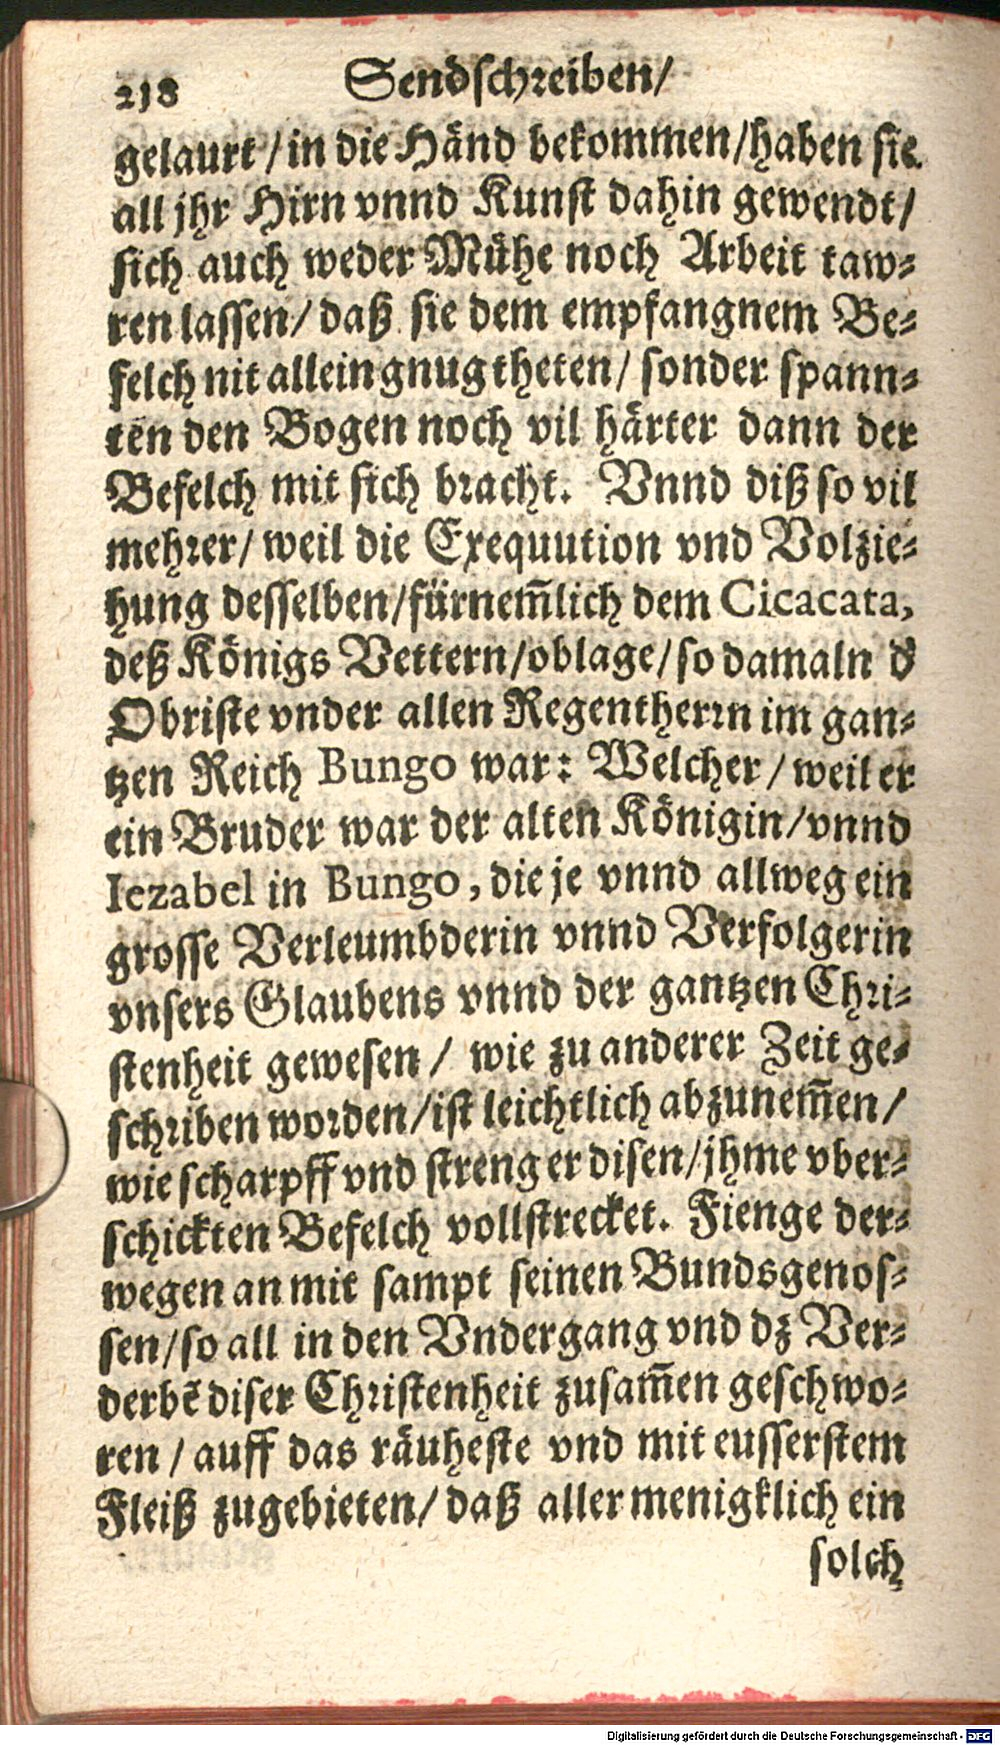 218 Sendschreiben/
gelaurt/in die Händ bekommen/haben sie
all jhr Hirn vnnd Kunst dahin gewendt/
sich auch weder Mühe noch Arbeit taw⸗
ren lassen/ daß sie dem empfangnem Be⸗
felch nit allein gnug theten/ sonder spann⸗
ten den Bogen noch vil härter dann der
Befelch mit sich bracht. Vnnd diß so vil
mehrer/ weil die Exequution vnd Volzie⸗
hung desselben/fürnem̃lich dem Cicacata,
deß Königs Vettern/oblage/so damaln dʼ
Obriste vnder allen Regentherrn im gan⸗
tzen Reich Bungo war: Welcher/ weil er
ein Bruder war der alten Königin/vnnd
Iezabel in Bungo, die je vnnd allweg ein
grosse Verleumbderin vnnd Verfolgerin
vnsers Glaubens vnnd der gantzen Chri⸗
stenheit gewesen/ wie zu anderer Zeit ge⸗
schriben worden/ist leichtlich abzunem̃en/
wie scharpff vnd streng er disen/jhme vber⸗
schickten Befelch vollstrecket. Fienge der⸗
wegen an mit sampt seinen Bundsgenos⸗
sen/so all in den Vndergang vnd dz Ver⸗
derbẽ diser Christenheit zusam̃en geschwo⸗
ren/ auff das räuheste vnd mit eusserstem
Fleiß zugebieten/ daß aller menigklich ein
solch
Digitalisierung gefördert durch die Deutsche Forschungsgemeinschaft - DFG